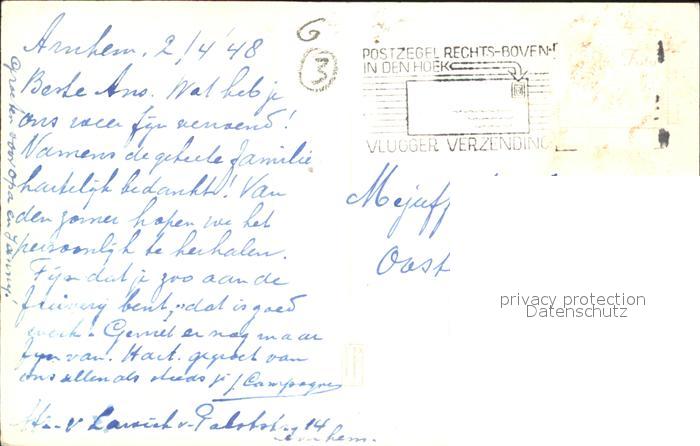 Arnhem. 2/4 '48
Beste Ans. Wat heb je
ons weer fijn verwend!
Namens de geheele familie
hartelijk bedankt! Van
den zomer hopen we het
persoonlijk te herhalen.
Fijn dat je zoo aan de
bent, dat is goed
werk. Geniet er nog maar
fijn van. Hart. gegroet van
ons allen als steeds je
14
Arnhem.
Groeten voor Opa en
G
3
POSTZEGEL RECHTS-BOVEN
IN DEN HOEK
VLUGGER VERZENDING
Mejuff
Oost
privacy protection
Datenschutz